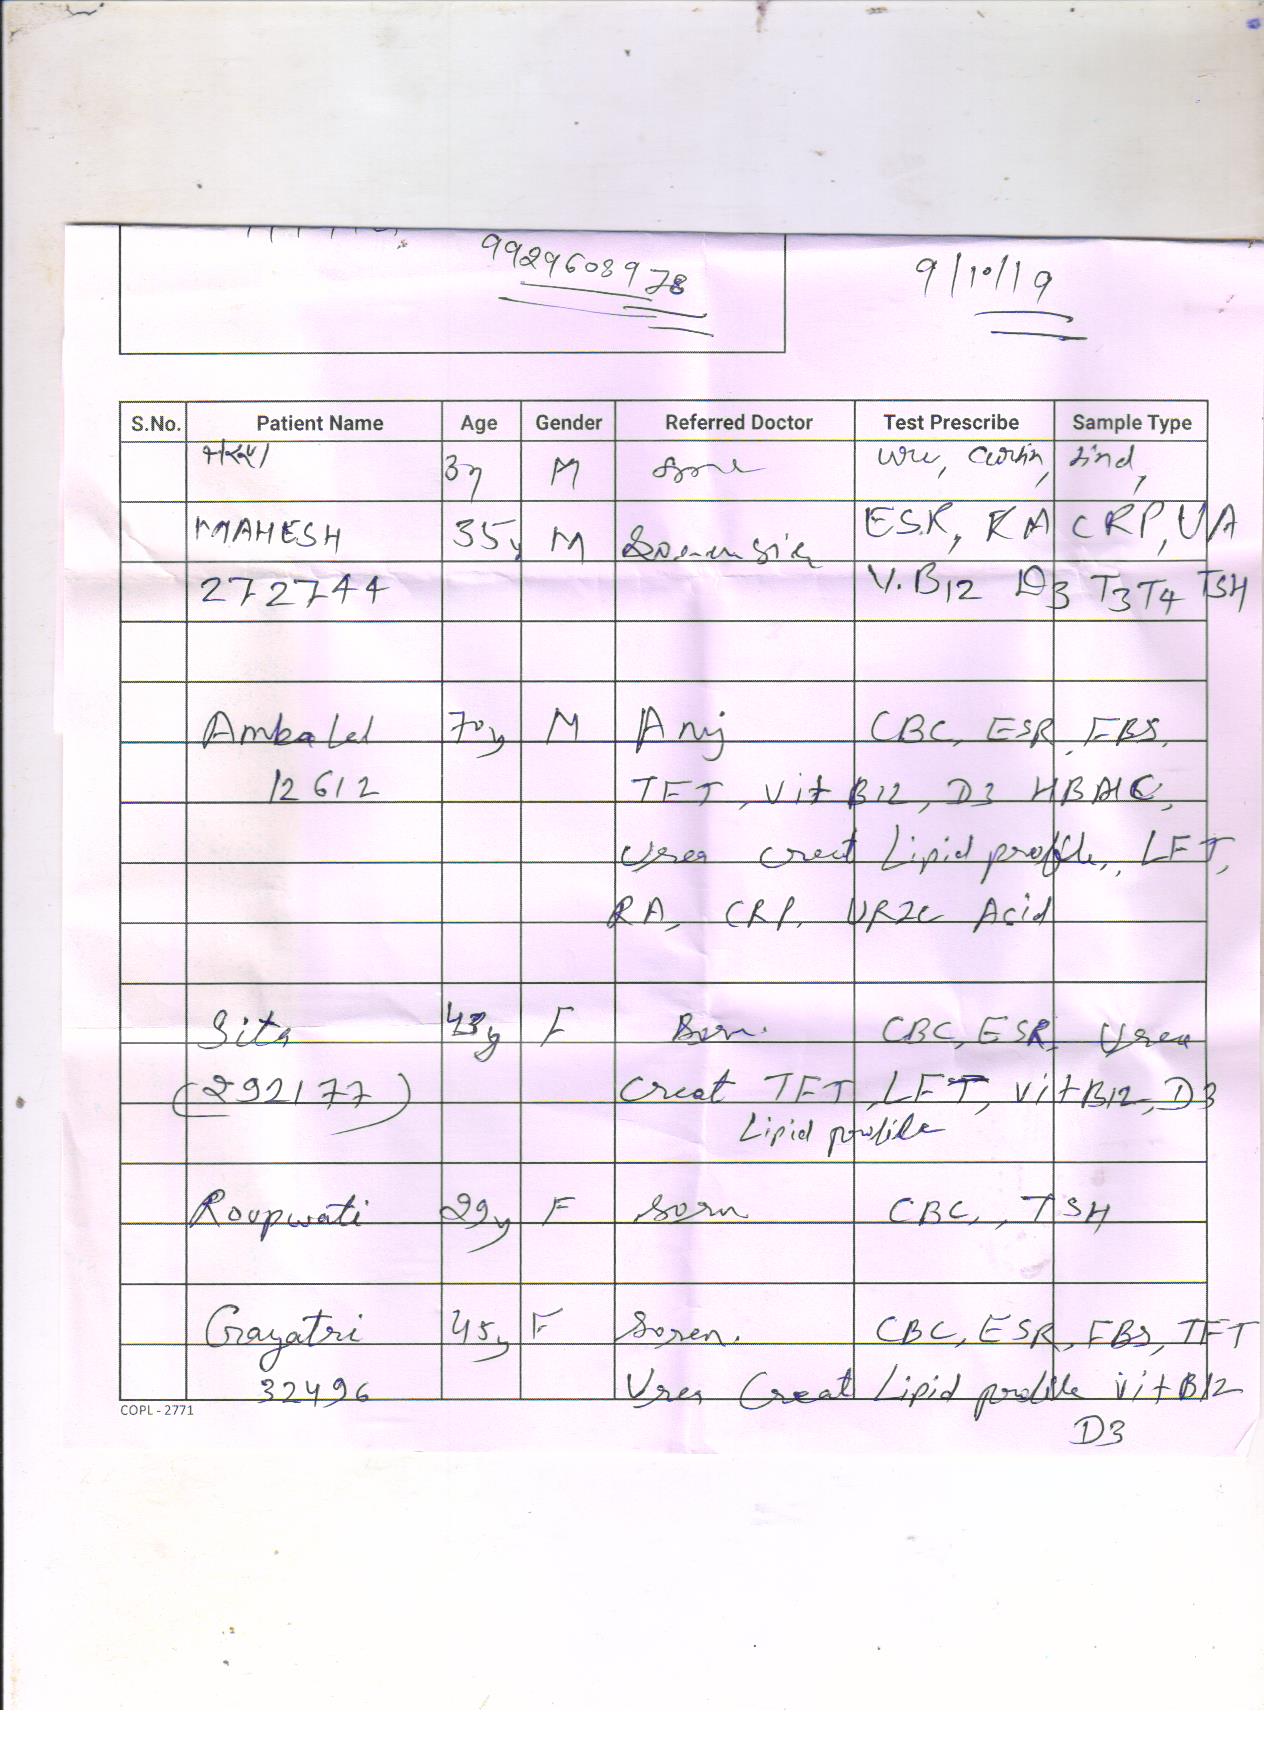 9929608978
9/10/19
S.No. Patient Name Age Gender Referred Doctor Test Prescribe Sample Type
M
MAHESH 35y M ESR, RA CRP, UA
272744 V.B12 D3 T3 T4 TSH
Ambalal 70y M CBC, ESR, FBS,
12612 TFT, Vit B12, D3 HBA1C,
Urea Creat Lipid profile, LFT,
RA, CRP, URIC Acid
Sita 43y F CBC, ESR, Urea
(292177) Creat TFT, LFT, Vit B12, D3
Lipid profile
Roopwati 29y F Sorn CBC, TSH
Gayatri 45y F Soren. CBC, ESR, FBS, TFT
32496 Urea Creat Lipid profile Vit B12
D3
COPL - 2771